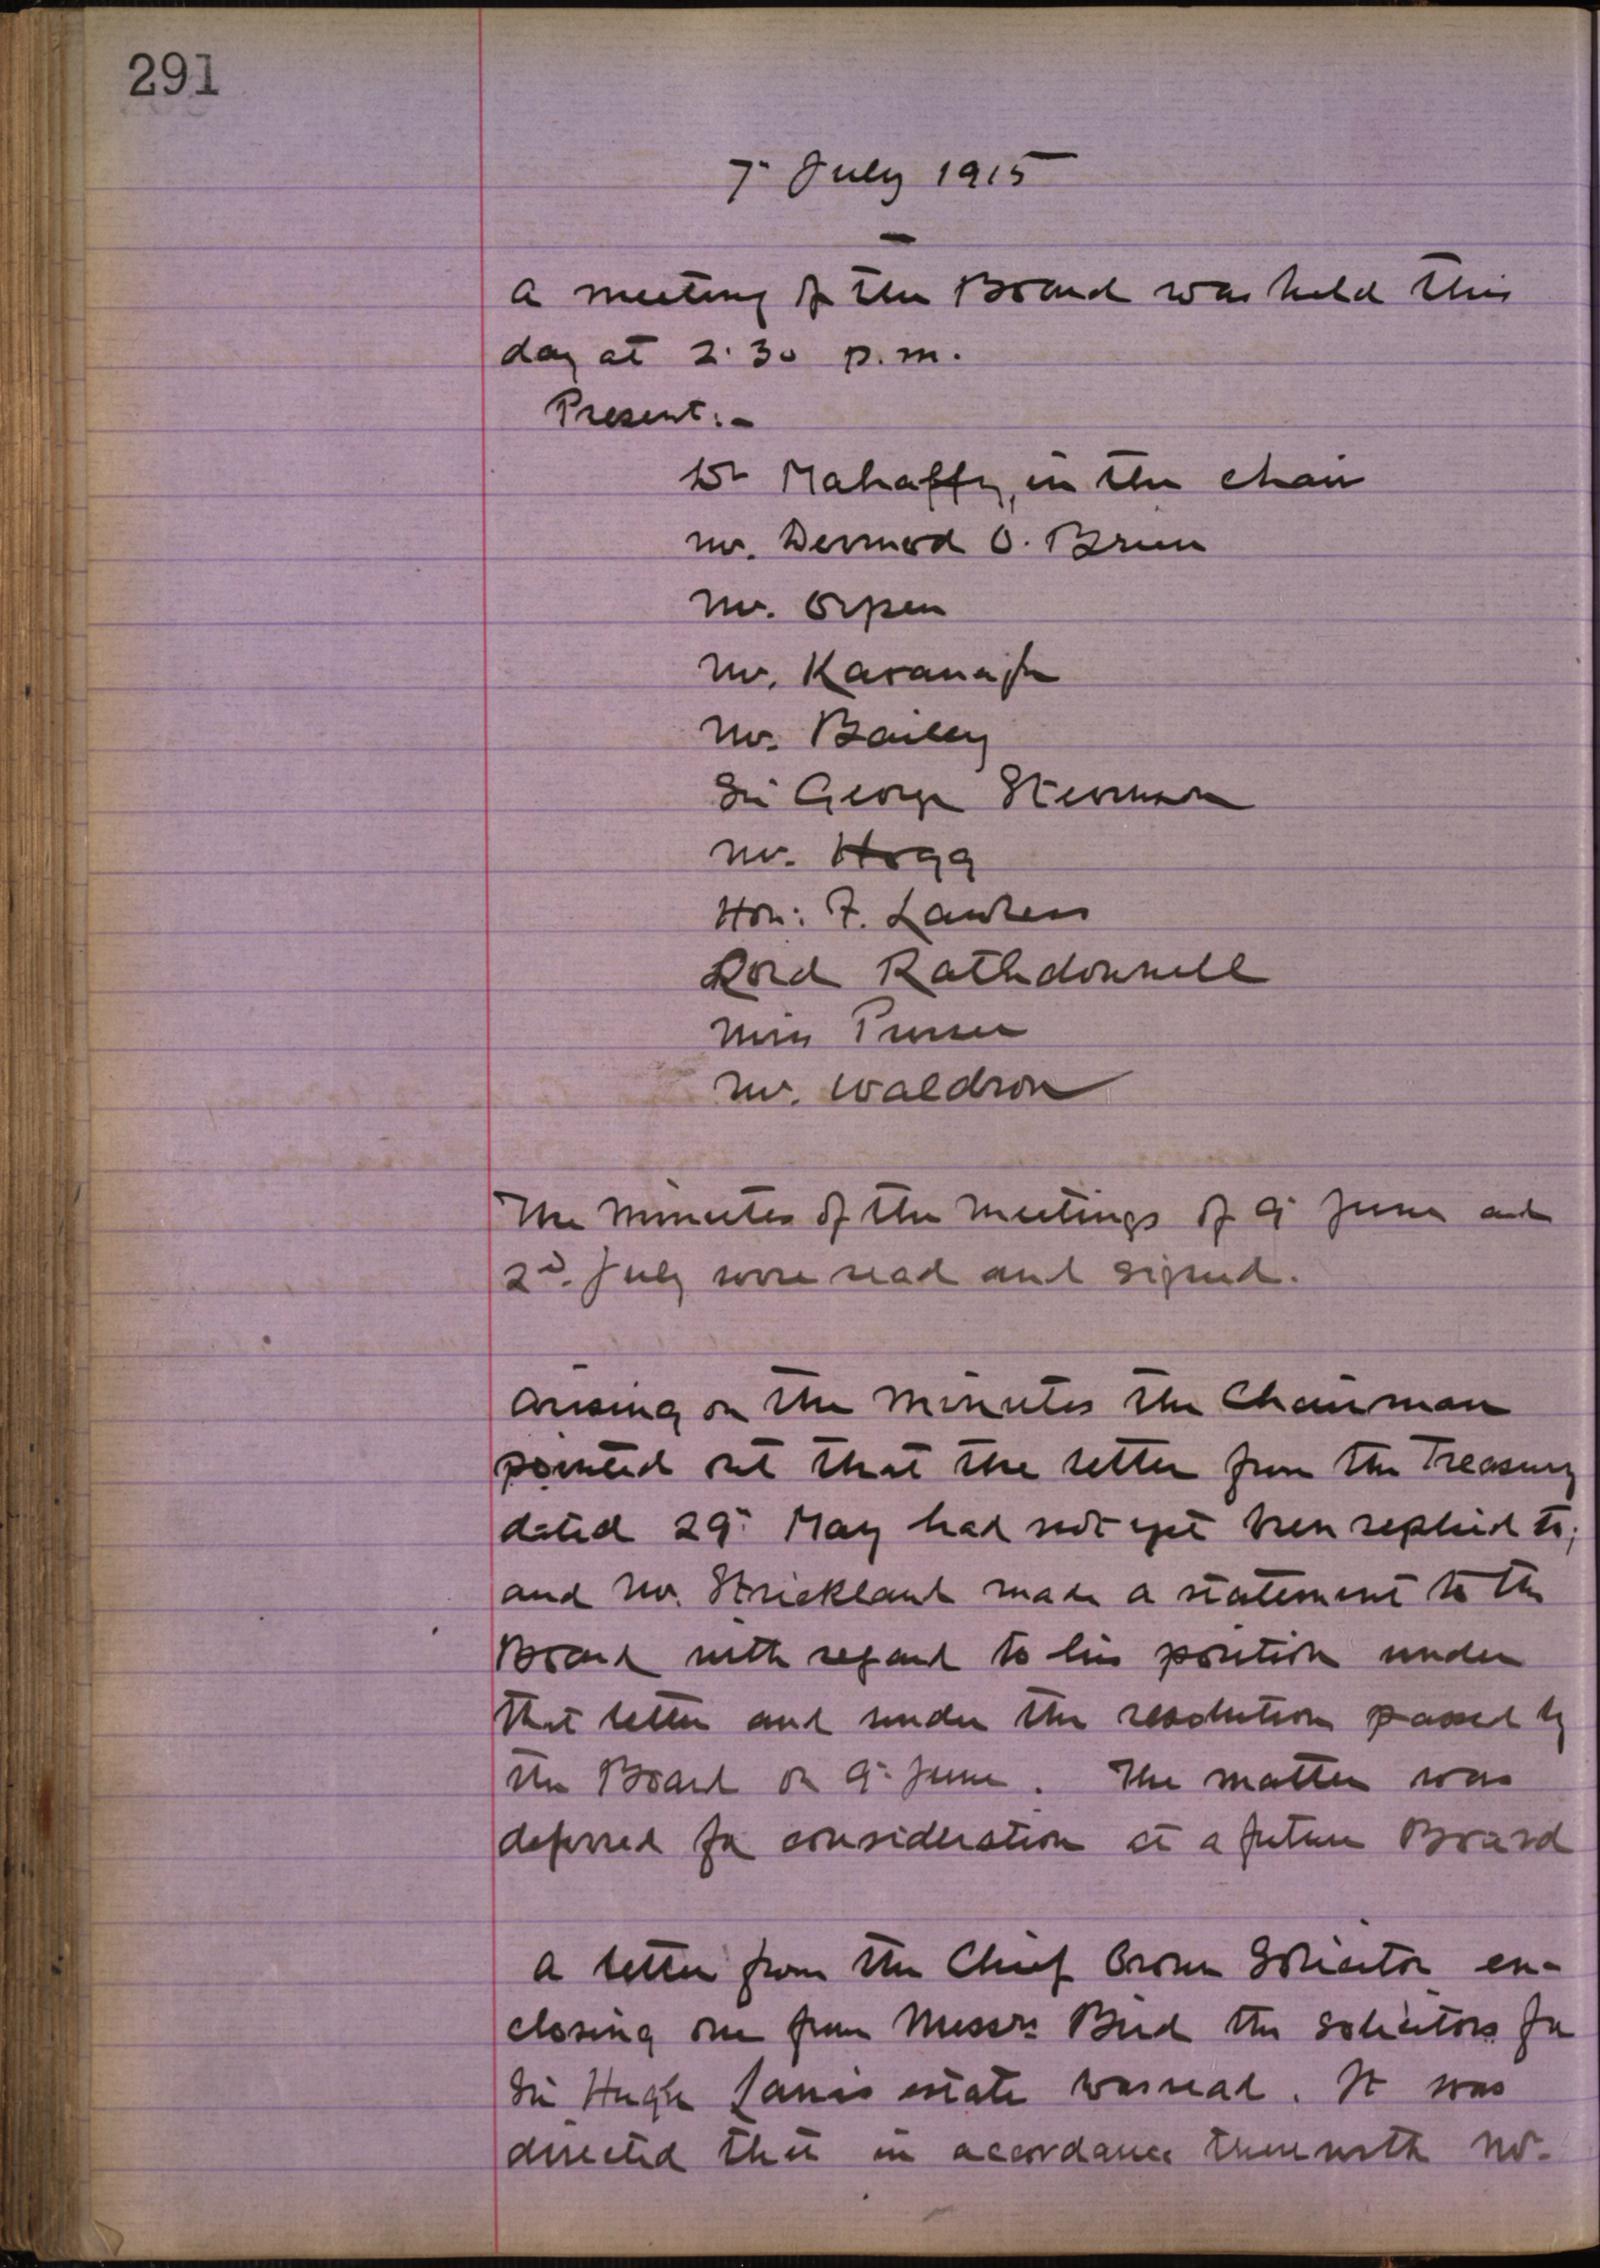 291
7 July 1915
A meeting of the Board was held this
day at 2.30 p.m.
Present:-
Dr Mahaffy, in the chair
Mr. Dermod O. Brien
Mr. Orpen
Mr. Kavanagh
Mr. Bailey
Sir George Stevenson
Mr. Hogg
Hon: F. Lawless
Lord Rathdonnell
Miss Purser
Mr. Waldron
The Minutes of the Meetings of 9 June and
2d. July were read and signed.
Arising on the Minutes the Chairman
pointed out that the letter from the Treasury
dated 29 May had not yet been replied to;
and Mr. Strickland made a statement to the
Board with regard to his position under
that letter and under the resolution passed by
the Board on 9 June. The matter was
deferred for consideration at a future Board
A letter from the Chief Crown Solicitor en-
closing one from Messrs Bird the solicitors for
Sir Hugh Lane's estate was read. It was
directed that in accordance therewith Mr.